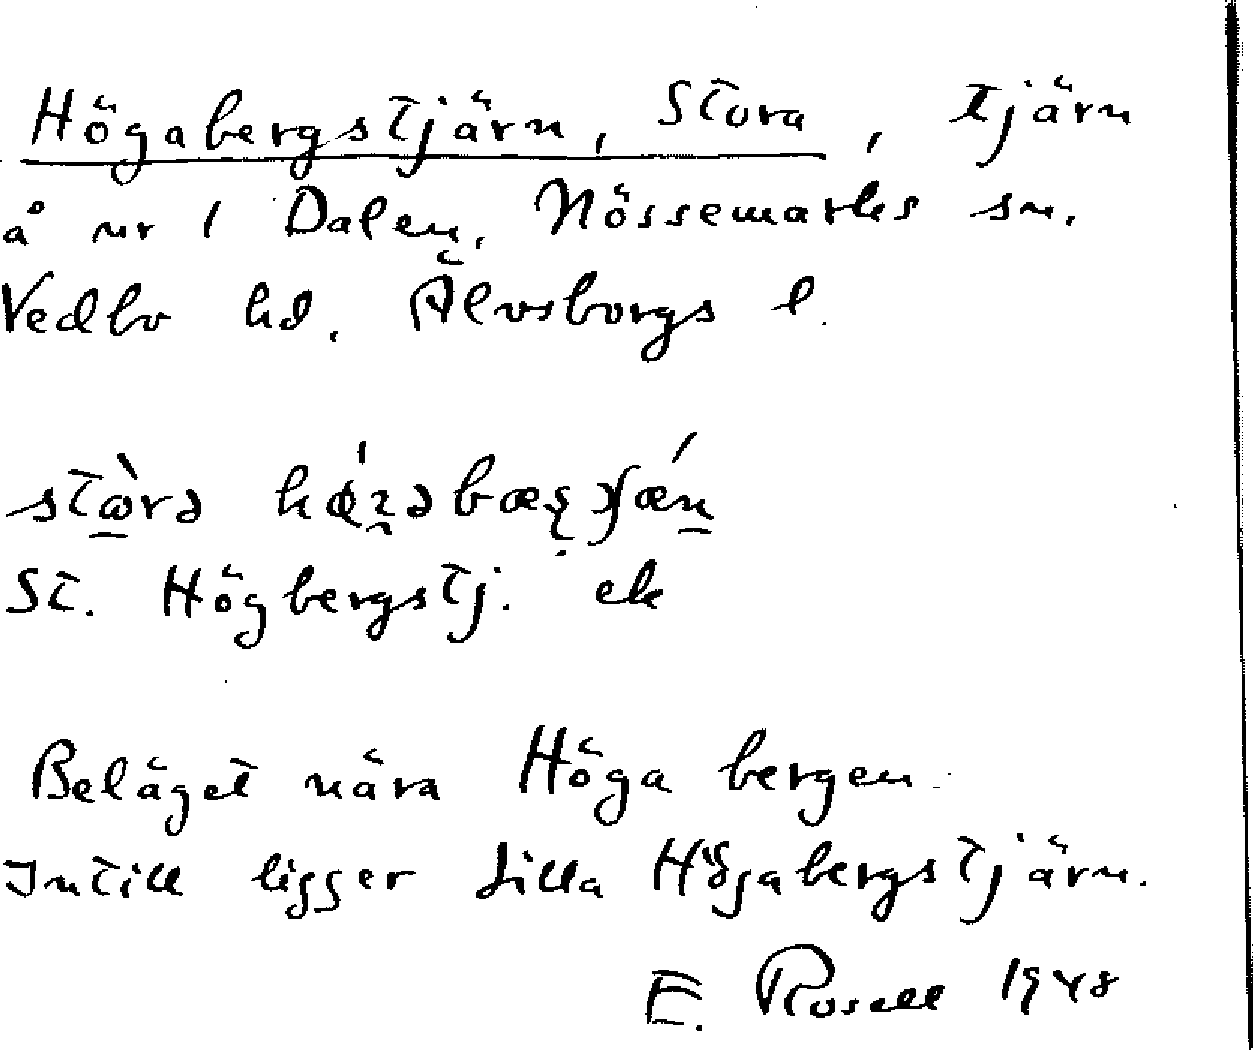 Högabergstjärn, Stora, tjärn
å nr 1 Dalen, Nössemarks sn.
Vedbo hd. Älvsborgs l.
St. Högbergstj. ek
Beläget nära Höga bergen.
Intill ligger Lilla Högabergstjärn.
E. Rosell 1948